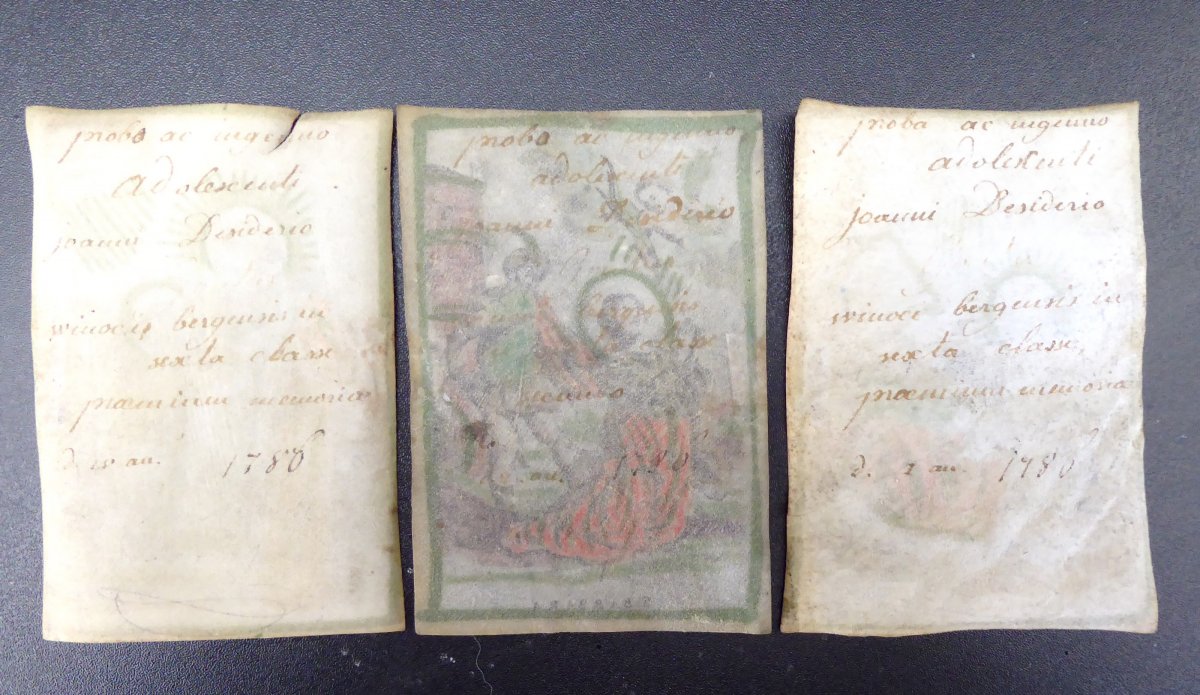 probo ac ingenuo
adolescenti
joanni Desiderio
winocis bergensis in
sexta classe
praemium memoriae
d. an. 1786
probo ac ingenuo
adolescenti
joanni Desiderio
bergensis
classe
secundo
an. 1786
proba ac ingenuo
adolescenti
joanni Desiderio
winoci bergensis in
sexta classe,
praemium memoriae
d. 1 an. 1786